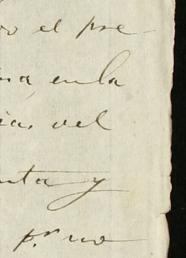 o el pre-
na, en la
ias del
nta y
p.r no